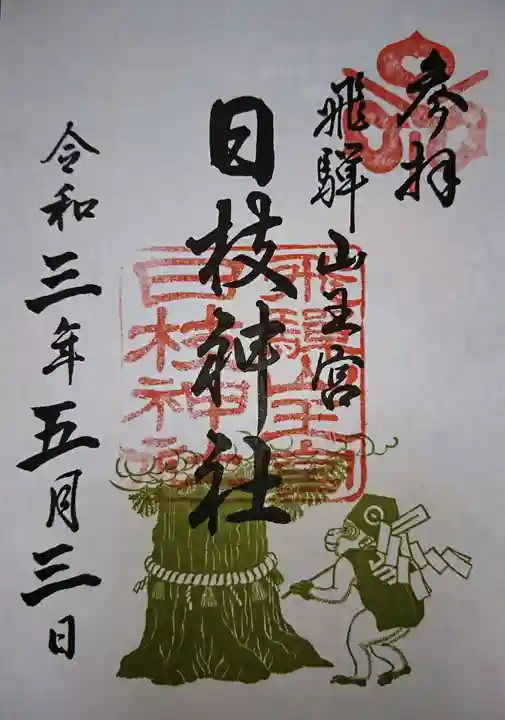 参拝
飛騨山王宮
日枝神社
令和三年五月三日
飛騨山王宮
日枝神社